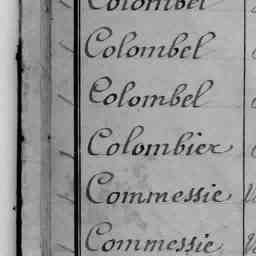 Colombel
Colombel
Colombel
Colombier
Commessie
Commessie